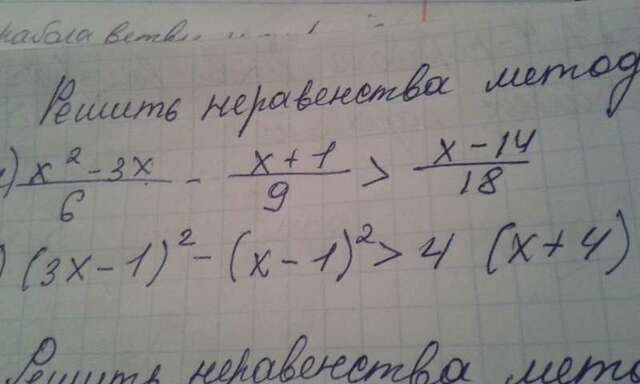 Решить неравенства метод
x² - 3x / 6 - x + 1 / 9 > x - 14 / 18
(3x - 1)² - (x - 1)² > 4 (x + 4)
Решить неравенства мето